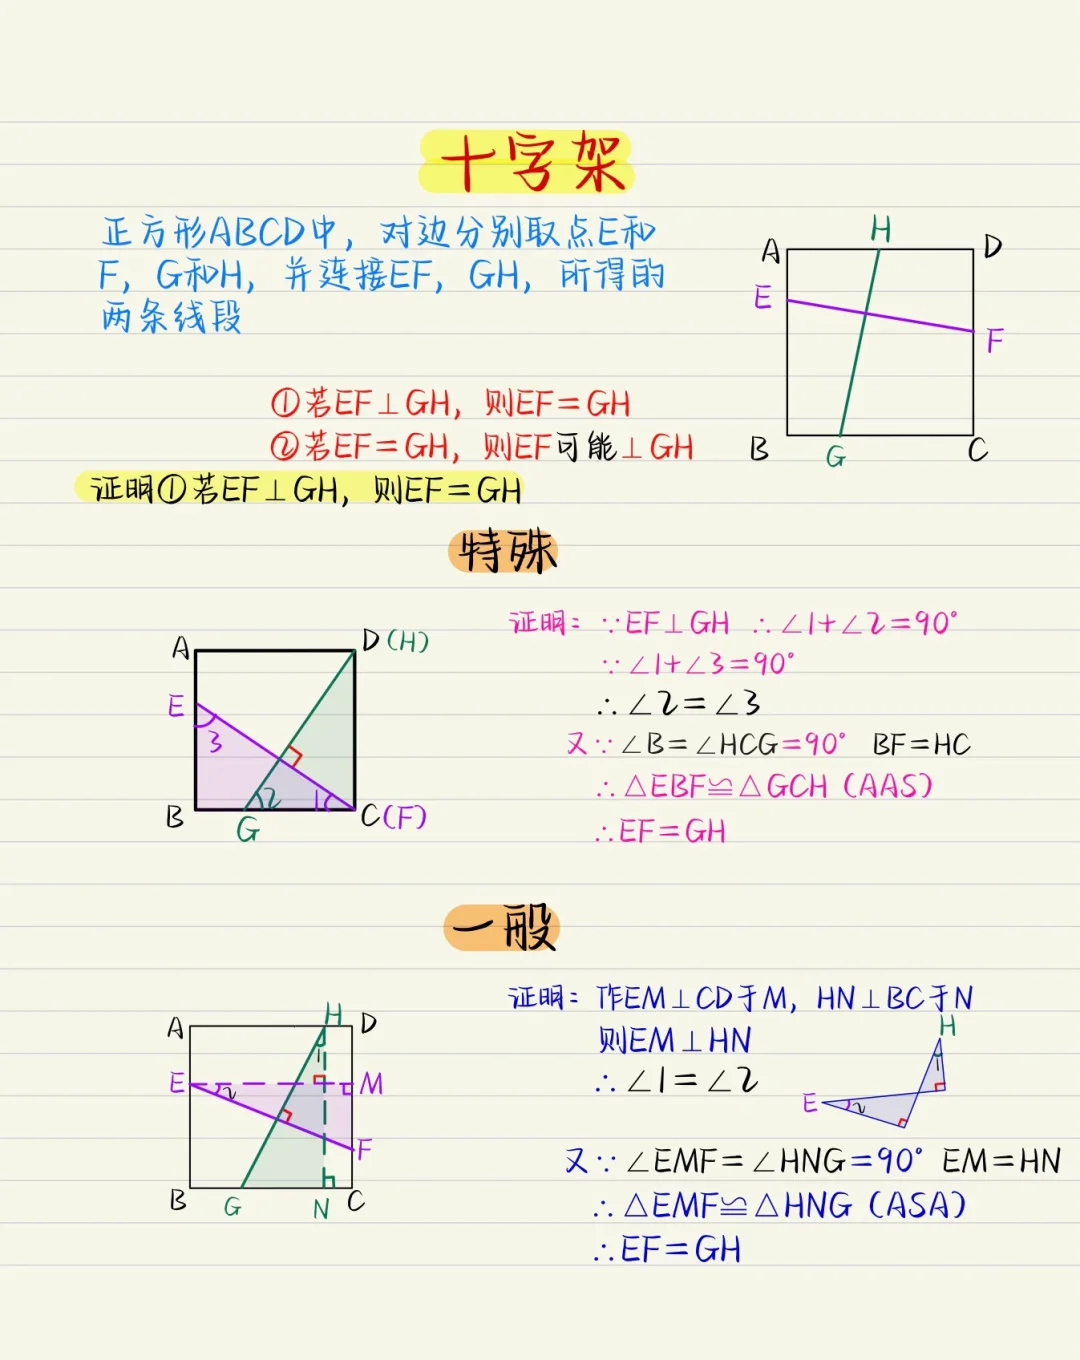 十字架
正方形ABCD中，对边分别取点E和
F，G和H，并连接EF，GH，所得的
两条线段
A
H
D
E
F
B
G
C
①若EF⊥GH，则EF=GH
②若EF=GH，则EF可能⊥GH
证明①若EF⊥GH，则EF=GH
特殊
A
D(H)
E
3
B
G
2
1
C(F)
证明：∵EF⊥GH ∴∠1+∠2=90°
∵∠1+∠3=90°
∴∠2=∠3
又∵∠B=∠HCG=90° BF=HC
∴△EBF≌△GCH（AAS）
∴EF=GH
一般
A
H
D
1
E
2
M
F
B
G
N
C
证明：作EM⊥CD于M，HN⊥BC于N
则EM⊥HN
∴∠1=∠2
H
1
E
2
又∵∠EMF=∠HNG=90° EM=HN
∴△EMF≌△HNG（ASA）
∴EF=GH